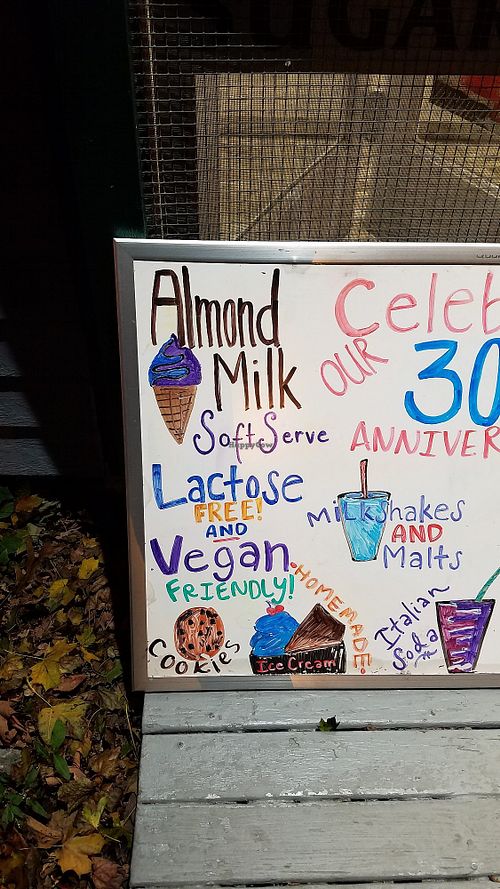 SUGAR
Almond
Milk
Soft Serve
Lactose
FREE!
AND
Vegan
FRIENDLY!
Cookies
Ice Cream
HOMEMADE.
Celeb
OUR
30
ANNIVER
Milkshakes
AND
Malts
Italian
Soda
HappyCow